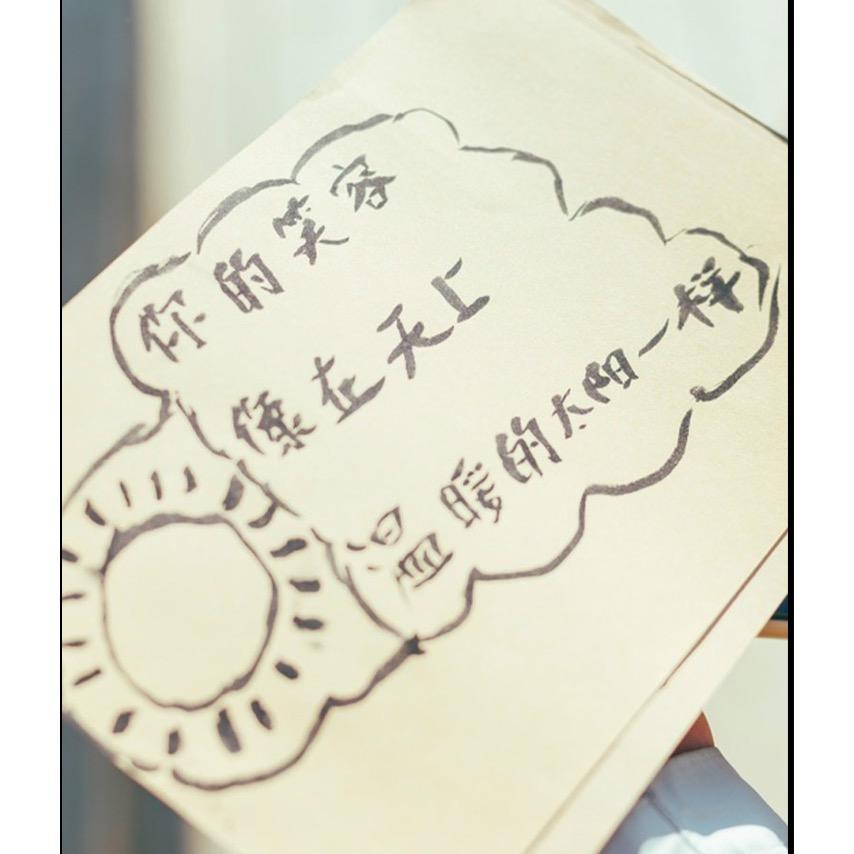 你的笑容
像在天上
温暖的太阳一样